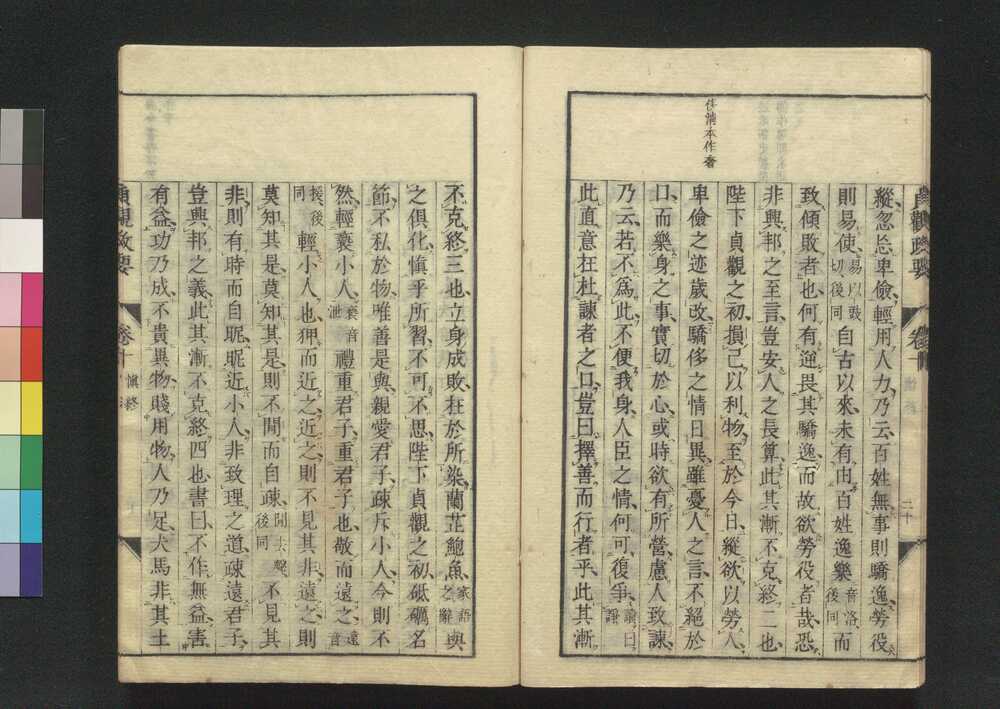 貞觀政要
卷十
二十
縱忽忘卑儉輕用人力乃云百姓無事則驕逸勞役
則易使易以豉切後同自古以來未有由百姓逸樂音洛後同而
致傾敗者也何有逆畏其驕逸而故欲勞役者哉恐
非興邦之至言豈安人之長算此其漸不克終二也
陛下貞觀之初損己以利物至於今日縱欲以勞人
卑儉之迹歲改驕侈之情日異雖憂人之言不絕於
口而樂身之事實切於心或時欲有所營慮人致諫
乃云若不爲此不便我身人臣之情何可復爭
此直意在杜諫者之口豈曰擇善而行者乎此其漸
不克終三也立身成敗在於所染蘭芷鮑魚家語之辭與
之俱化愼乎所習不可不思陛下貞觀之初砥礪名
節不私於物唯善是與親愛君子疎斥小人今則不
然輕褻小人褻音泄禮重君子重君子也敬而遠之遠音
援後同輕小人也狎而近之近之則不見其非遠之則
莫知其是莫知其是則不閒而自疎閒去聲後同不見其
非則有時而自昵昵近小人非致理之道疎遠君子
豈興邦之義此其漸不克終四也書曰不作無益害
有益功乃成不貴異物賤用物人乃足犬馬非其土
貞觀政要
卷十
愼終